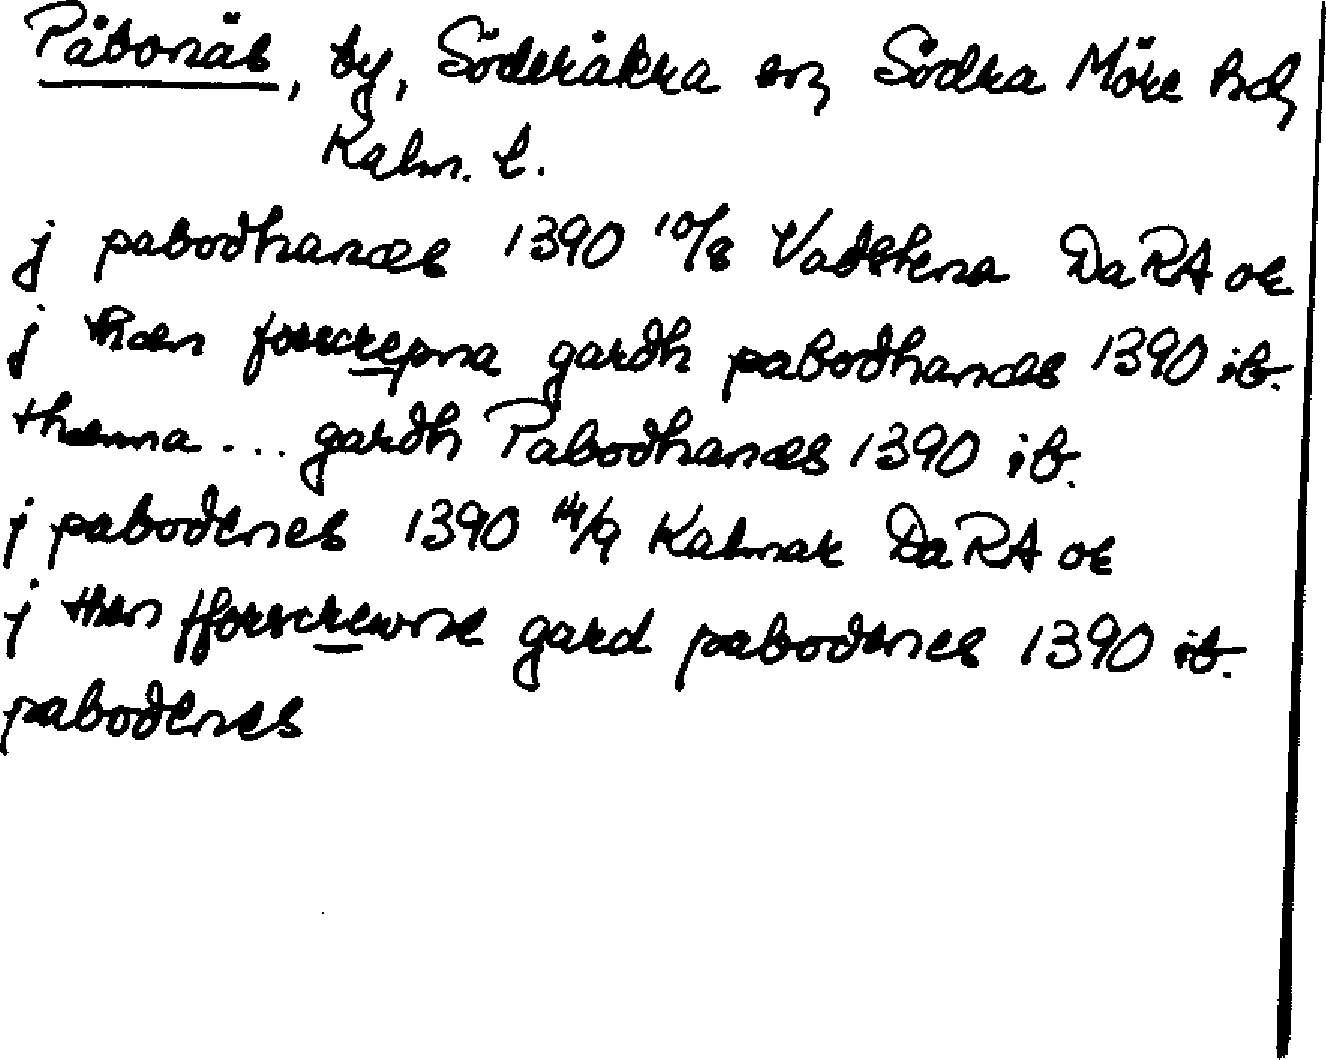 Påbonäs, by, Söderåkra sn, Södra Möre hd,
Kalm. l.
j pabodhanæs 1390 10/8 Vadstena DaRA or
j thæn forscrepna gardh pabodhanæs 1390 ib.
thænna ... gardh Pabodhanæs 1390 ib.
j pabodenes 1390 14/9 Kalmar DaRA or
j then fforscrewne gard pabodenes 1390 ib.
pabodenes